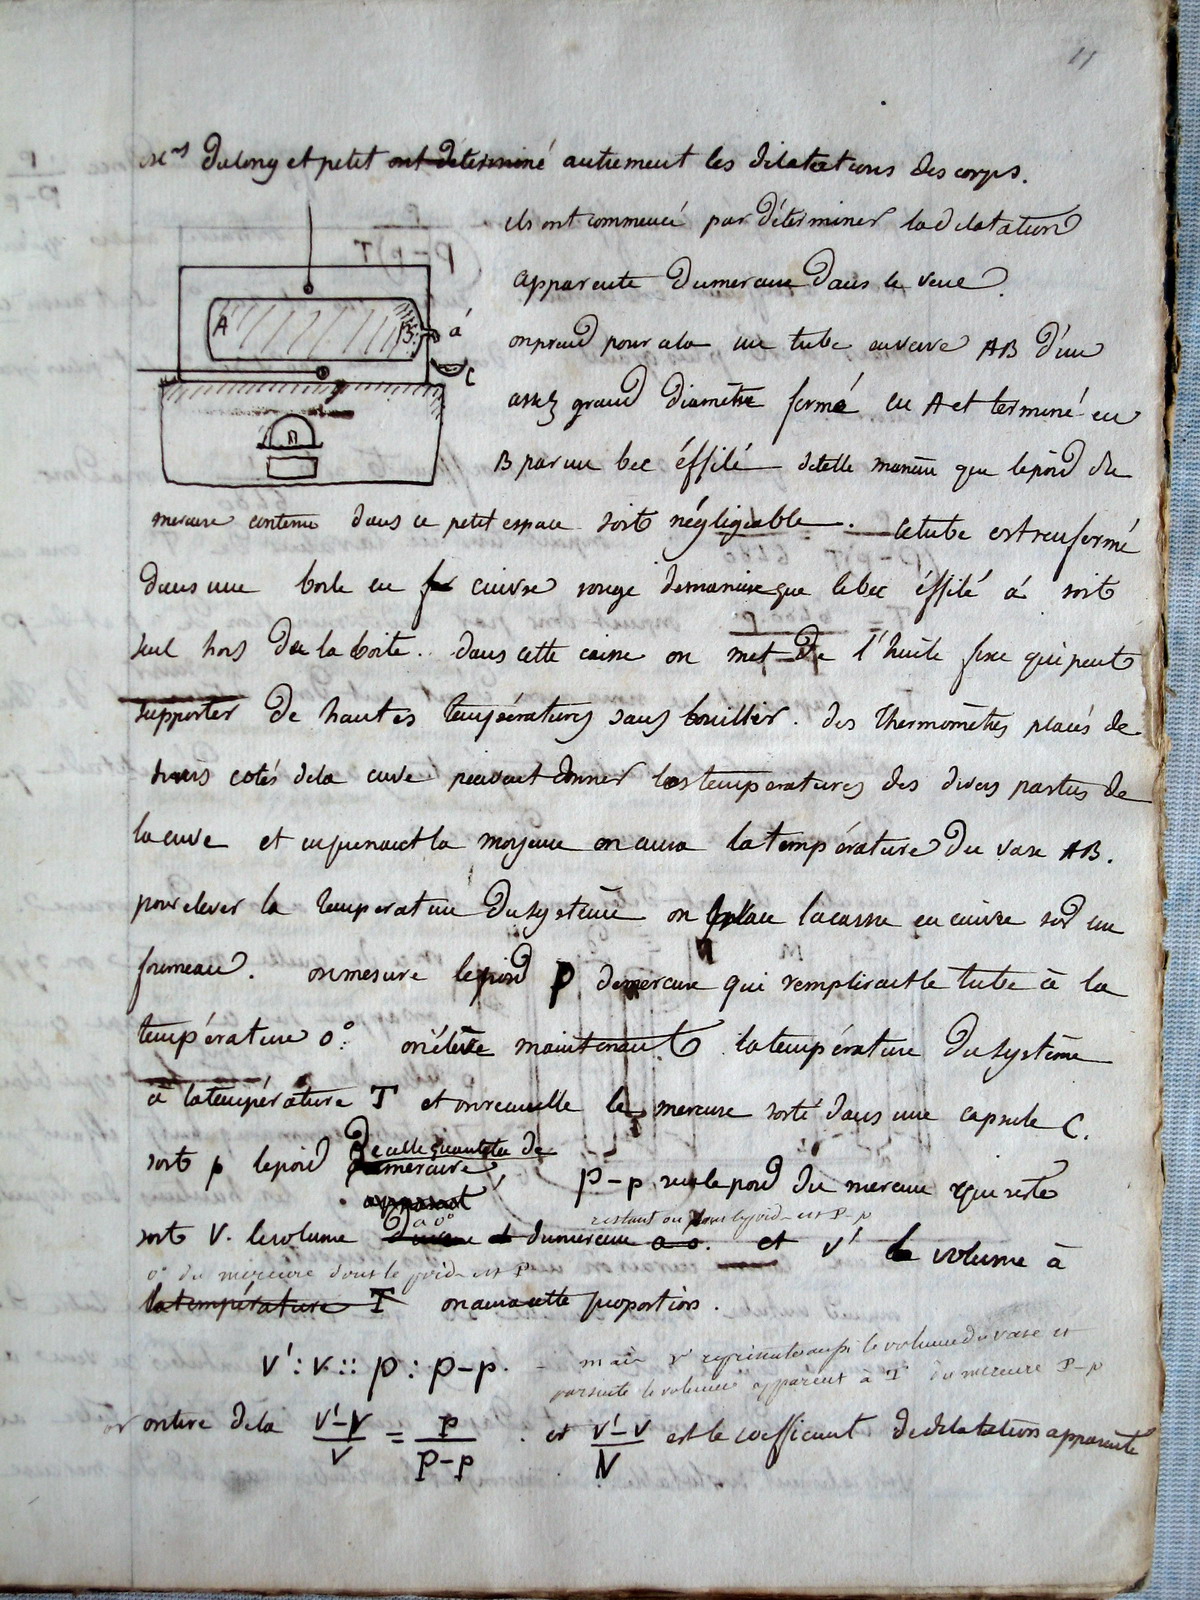 11
Mrs dulong et petit ont determiné autrement les dilatations des corps.
ils ont commencé par déterminer la dilatation
apparente du mercure dans le verre.
on prend pour cela un tube en verre AB d'un
assez grand diamètre fermé en A et terminé en
B par un bec éffilé de telle manière que le poid du
mercure contenu dans ce petit espace soit négligeable. Ce tube est renfermé
dans une boite en cuivre rouge de maniere que le bec éffilé á soit
seul hors de la boite. dans cette caisse on met de l'huile fixe qui peut
supporter de hautes températures sans bouillir. des thermomètres placés de
divers cotés de la cuve peuvent donner les temperatures des divers parties de
la cuve et en prenant la moyenne on aura la température du vase AB.
pour elever la temperature du système on place la caisse en cuivre sur un
fourneau. on mesure le poid P de mercure qui remplirait le tube à la
température 0°. on élève maintenant la température du système
à la température T et on recueille le mercure sorti dans une capsule C.
de cette quantité de
soit p le poid du mercure P-p sera le poid du mercure qui reste
apparent
à 0° restant ou dont le poid est P-p
soit V le volume du mercure à 0. et V' le volume à
0° du mercure dont le poid est P
la température T on aura cette proportion.
V' : V :: P : P-p. mais V' représente aussi le volume du vase et
par suite le volume apparent à T du mercure P-p
or on tire de la V'-V/V = p/P-p : et V'-V/V est le coefficient de dilatation apparente
A B á C